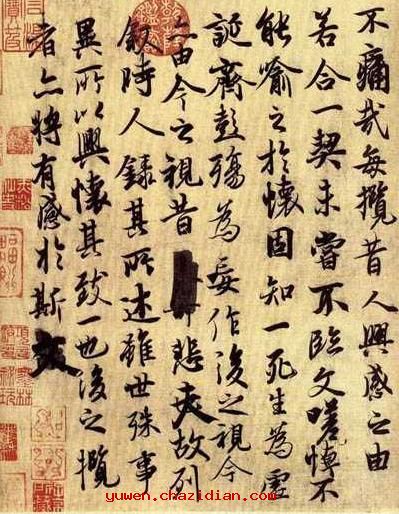 不痛哉每攬昔人興感之由
若合一契未嘗不臨文嗟悼不
能喻之於懷固知一死生為虛
誕齊彭殤為妄作後之視今
亦由今之視昔悲夫故列
敘時人錄其所述雖世殊事
異所以興懷其致一也後之攬
者亦將有感於斯文
yuwen.chazidian.com